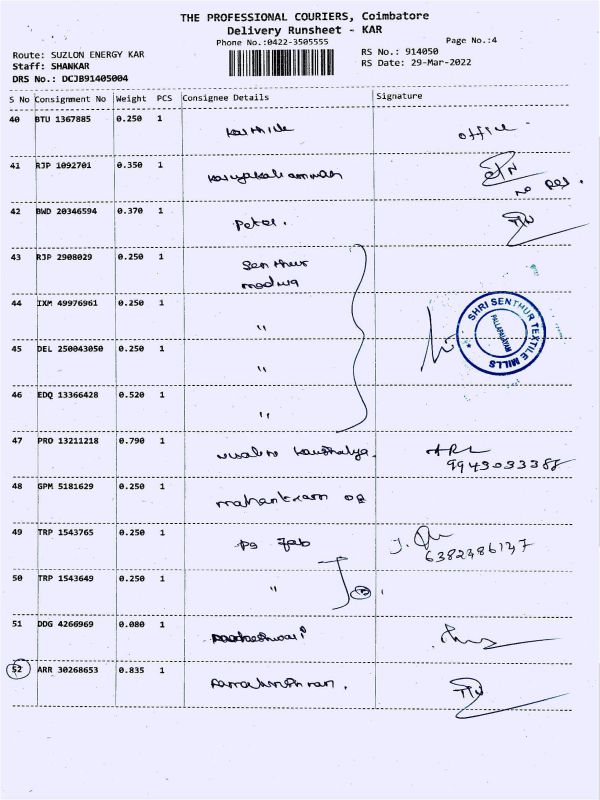 THE PROFESSIONAL COURIERS, Coimbatore
Delivery Runsheet - KAR
Phone No.:0422-3505555
Page No.:4
Route: SUZLON ENERGY KAR
RS No.: 914050
Staff: SHANKAR
RS Date: 29-Mar-2022
DRS No.: DCJB91405004
S No Consignment No Weight PCS Consignee Details Signature
40 BTU 1367885 0.250 1 office
41 RJP 1092701 0.350 1
no
42 BWD 20346594 0.370 1 Peter.
43 RJP 2908029 0.250 1 Senthur
44 IXM 49976961 0.250 1 "
SHRI SENTHUR TEXTILE MILLS
PALLAPALAYAM
45 DEL 250043050 0.250 1 "
46 EDQ 13366428 0.520 1 "
47 PRO 13211218 0.790 1 Kausthalya.
9943033388
48 GPM 5181629 0.250 1
49 TRP 1543765 0.250 1
6382386137
50 TRP 1543649 0.250 1 "
51 DDG 4266969 0.080 1
52 ARR 30268653 0.835 1